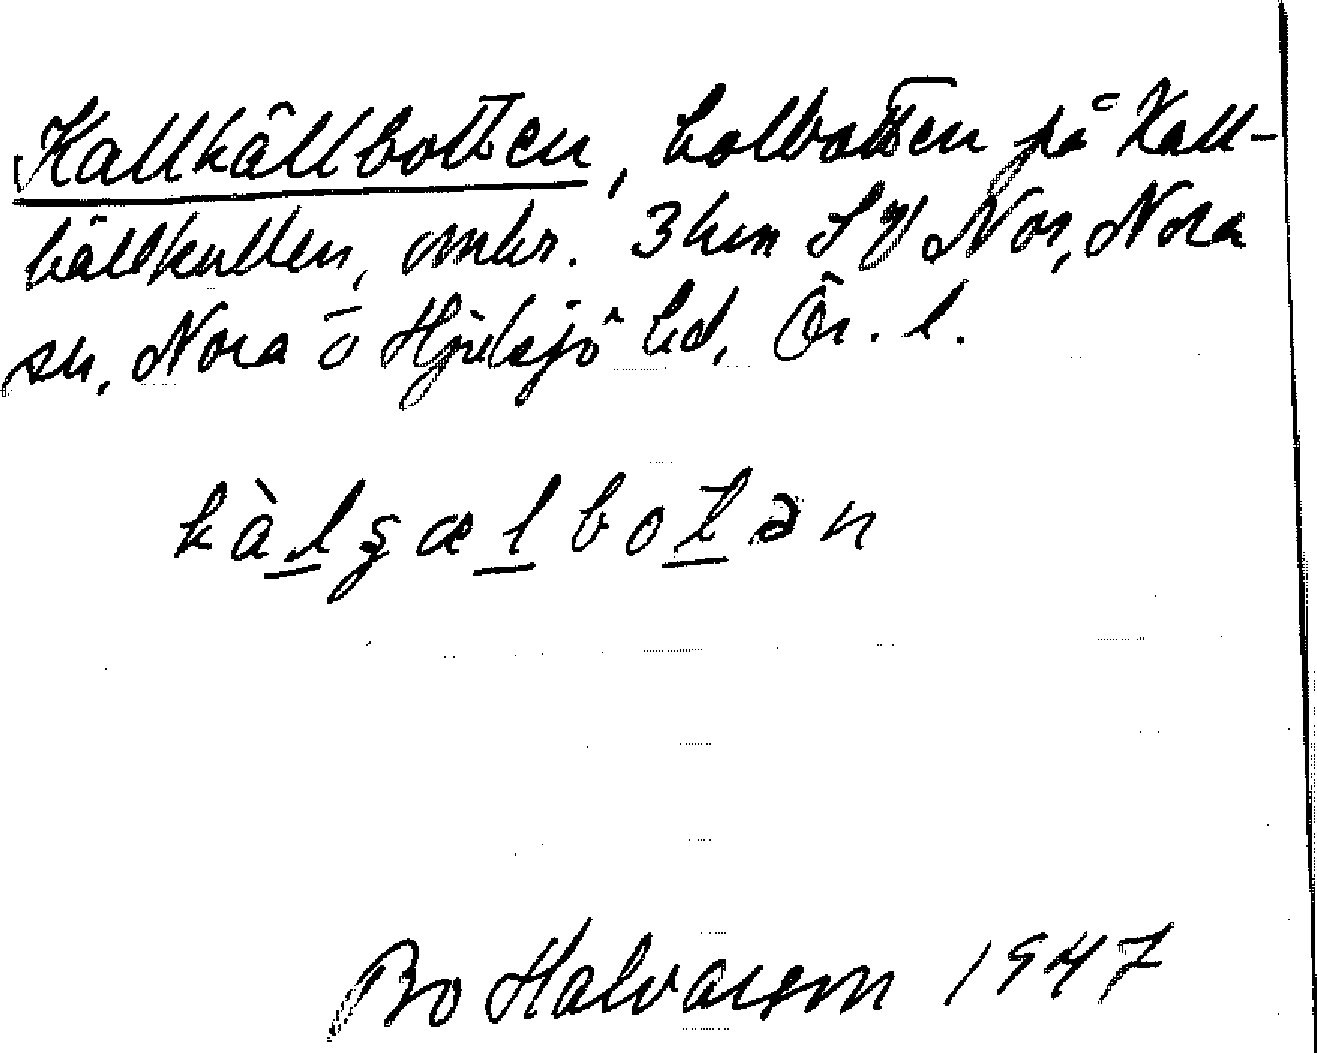 Kallkällbotten, kolbotten på Kall-
källkullen, omkr. 3 km SV Nor, Nora
sn, Nora o Hjulsjö hd, Ör. l.
kàlʂælbotən
Bo Halvarson 1947